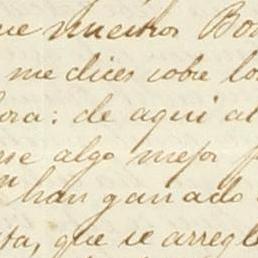 ue nuestros Bo
me dices sobre lo
ora: de aqui al
rse algo mejor p
n han ganado
ta, que se arregle